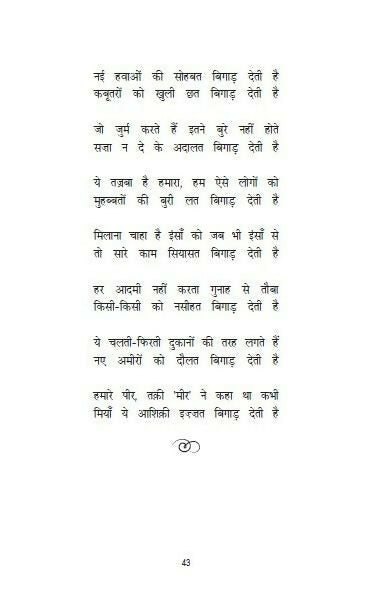 नई हवाओं की सोहबत बिगाड़ देती है
कबूतरों को खुली छत बिगाड़ देती है
जो जुर्म करते हैं इतने बुरे नहीं होते
सज़ा न दे के अदालत बिगाड़ देती है
ये तज़्रबा है हमारा, हम ऐसे लोगों को
मुहब्बतों की बुरी लत बिगाड़ देती है
मिलाना चाहा है इंसाँ को जब भी इंसाँ से
तो सारे काम सियासत बिगाड़ देती है
हर आदमी नहीं करता गुनाह से तौबा
किसी-किसी को नसीहत बिगाड़ देती है
ये चलती-फिरती दुकानों की तरह लगते हैं
नए अमीरों को दौलत बिगाड़ देती है
हमारे पीर, तक़ी 'मीर' ने कहा था कभी
मियाँ ये आशिक़ी इज़्ज़त बिगाड़ देती है
43